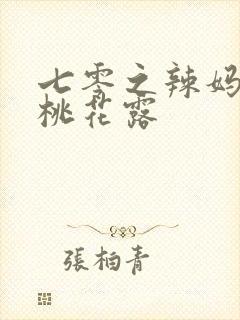 七零之辣妈
桃花露
張柏青